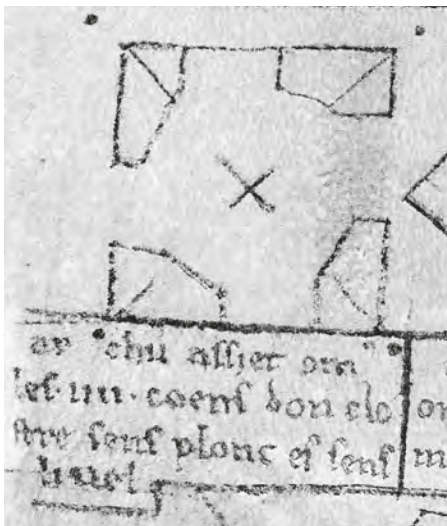 ar chu assiet om
les·iiii·coens don clo
stre sens plonc et sens
liuel